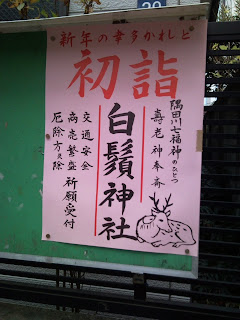 新年の幸多かれと
初詣
隅田川七福神のひとつ
寿老神奉斎
白鬚神社
交通安全
商売繁盛
厄除方災除
祈願受付
20